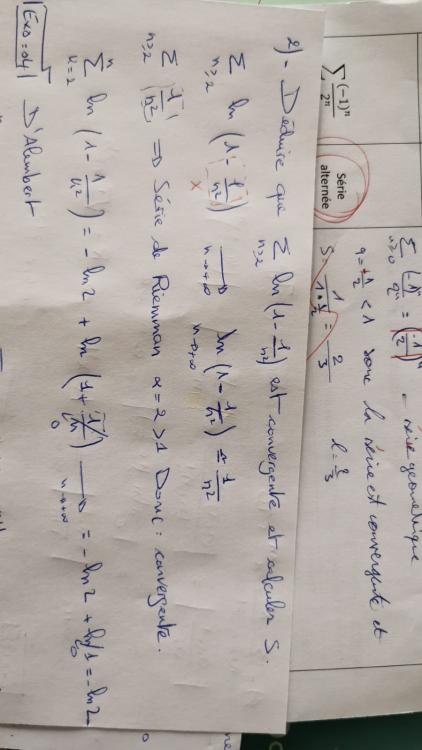 ∑ (-1)ⁿ/2ⁿ
Série alternée
∑ n≥0 (-1)ⁿ/2ⁿ = (-1/2)ⁿ - série géométrique
q = -1/2 < 1 donc la série est convergente et
S = 1/(1+1/2) = 2/3 l = 2/3
2)- Déduire que ∑ n≥2 ln(1 - 1/n²) est convergente et calculer S.
∑ n≥2 ln(1 - 1/n²) → n→+∞ ln(1 - 1/n²) = 1/n²
x n→+∞
∑ n≥2 |1/n²| ⇒ Série de Riemman α = 2 > 1 Donc : convergente.
∑ k=2 n ln(1 - 1/k²) = -ln 2 + ln(1 + 1/n) → n→+∞ = -ln 2 + ln 1 = -ln 2
0 0
Exo = 04 D'Alembert